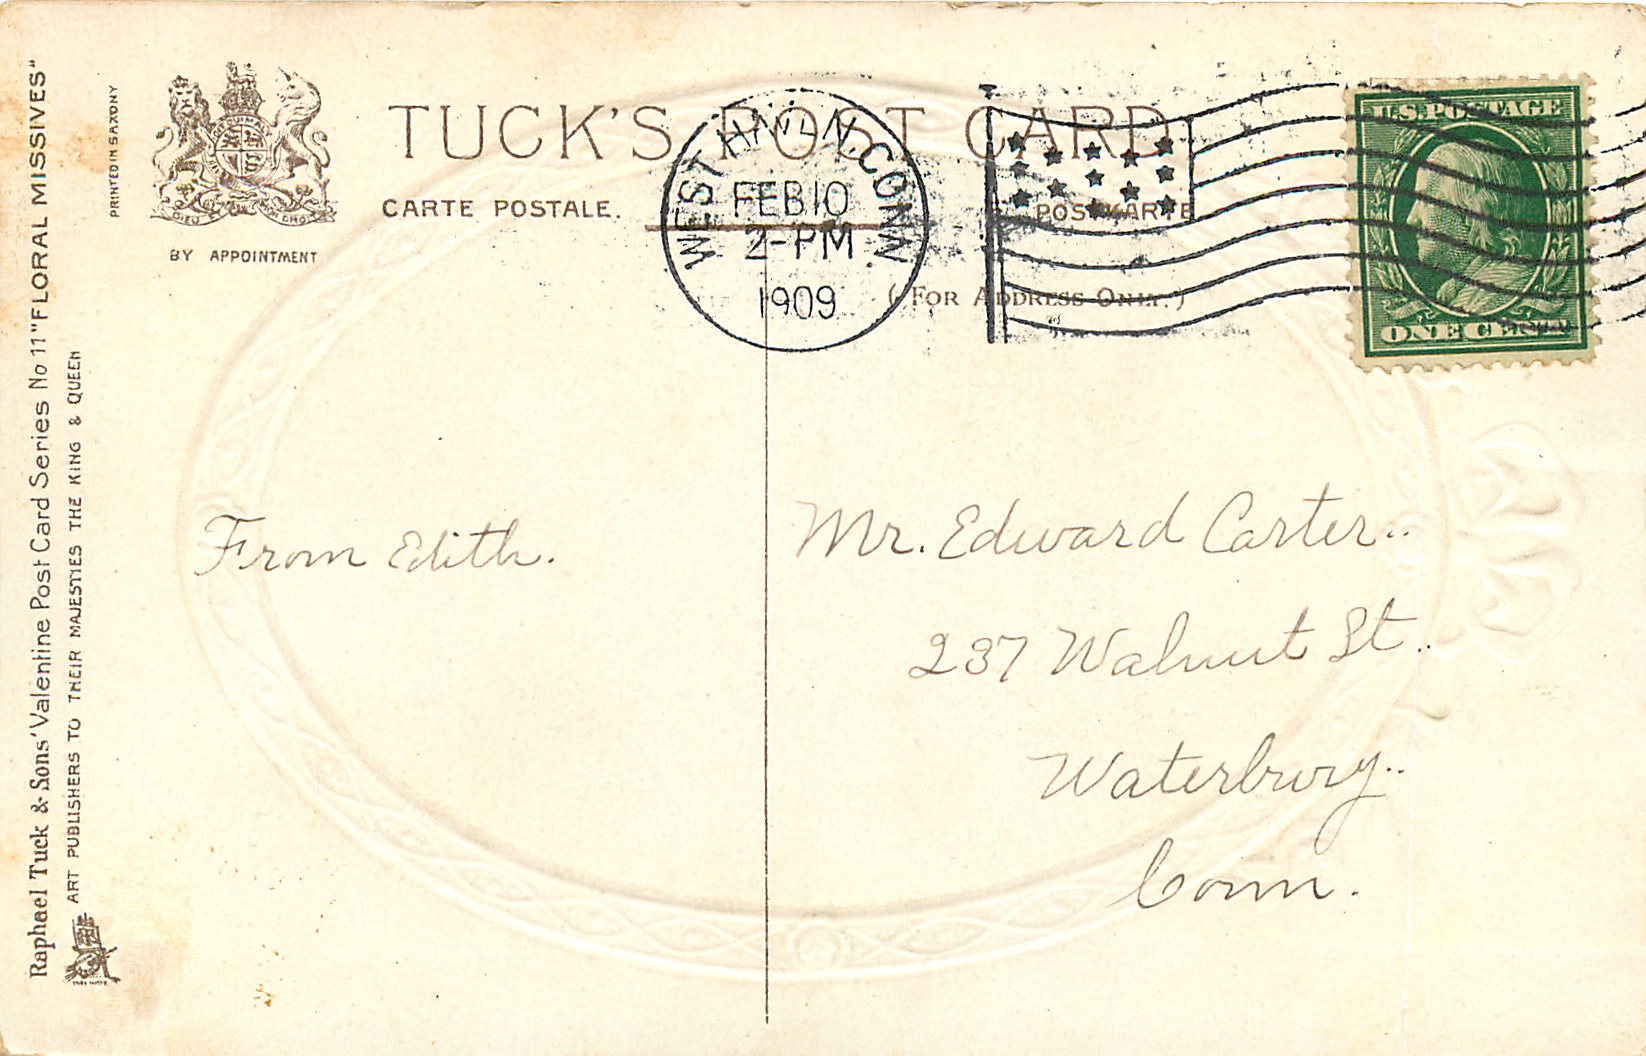 Raphael Tuck & Sons' Valentine Post Card Series No 11 "FLORAL MISSIVES"
ART PUBLISHERS TO THEIR MAJESTIES THE KING & QUEEN
PRINTED IN SAXONY
BY APPOINTMENT
TUCK'S POST CARD
CARTE POSTALE.
POSTKARTE
(FOR ADDRESS ONLY.)
WEST HAVEN, CONN.
FEB 10
2-PM
1909
U.S. POSTAGE
ONE CENT
From Edith.
Mr. Edward Carter..
237 Walnut St..
Waterbury..
Conn.